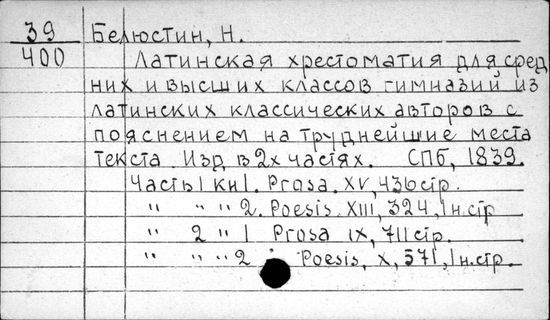 39 Белюстин, Н.
400 Латинская хрестоматия для сред
них и высших классов гимназий из
латинских классических авторов с
пояснением на труднейшие места
текста. Изд. в 2х частях. СПб, 1839.
Часть 1 кн 1. Prosa. XV, 436 стр.
" " " 2. Poesis. XIII, 324, 1 н.стр
" 2 " 1 Prosa IX, 711 стр.
" " " 2 " Poesis, X, 571, 1 н.стр.